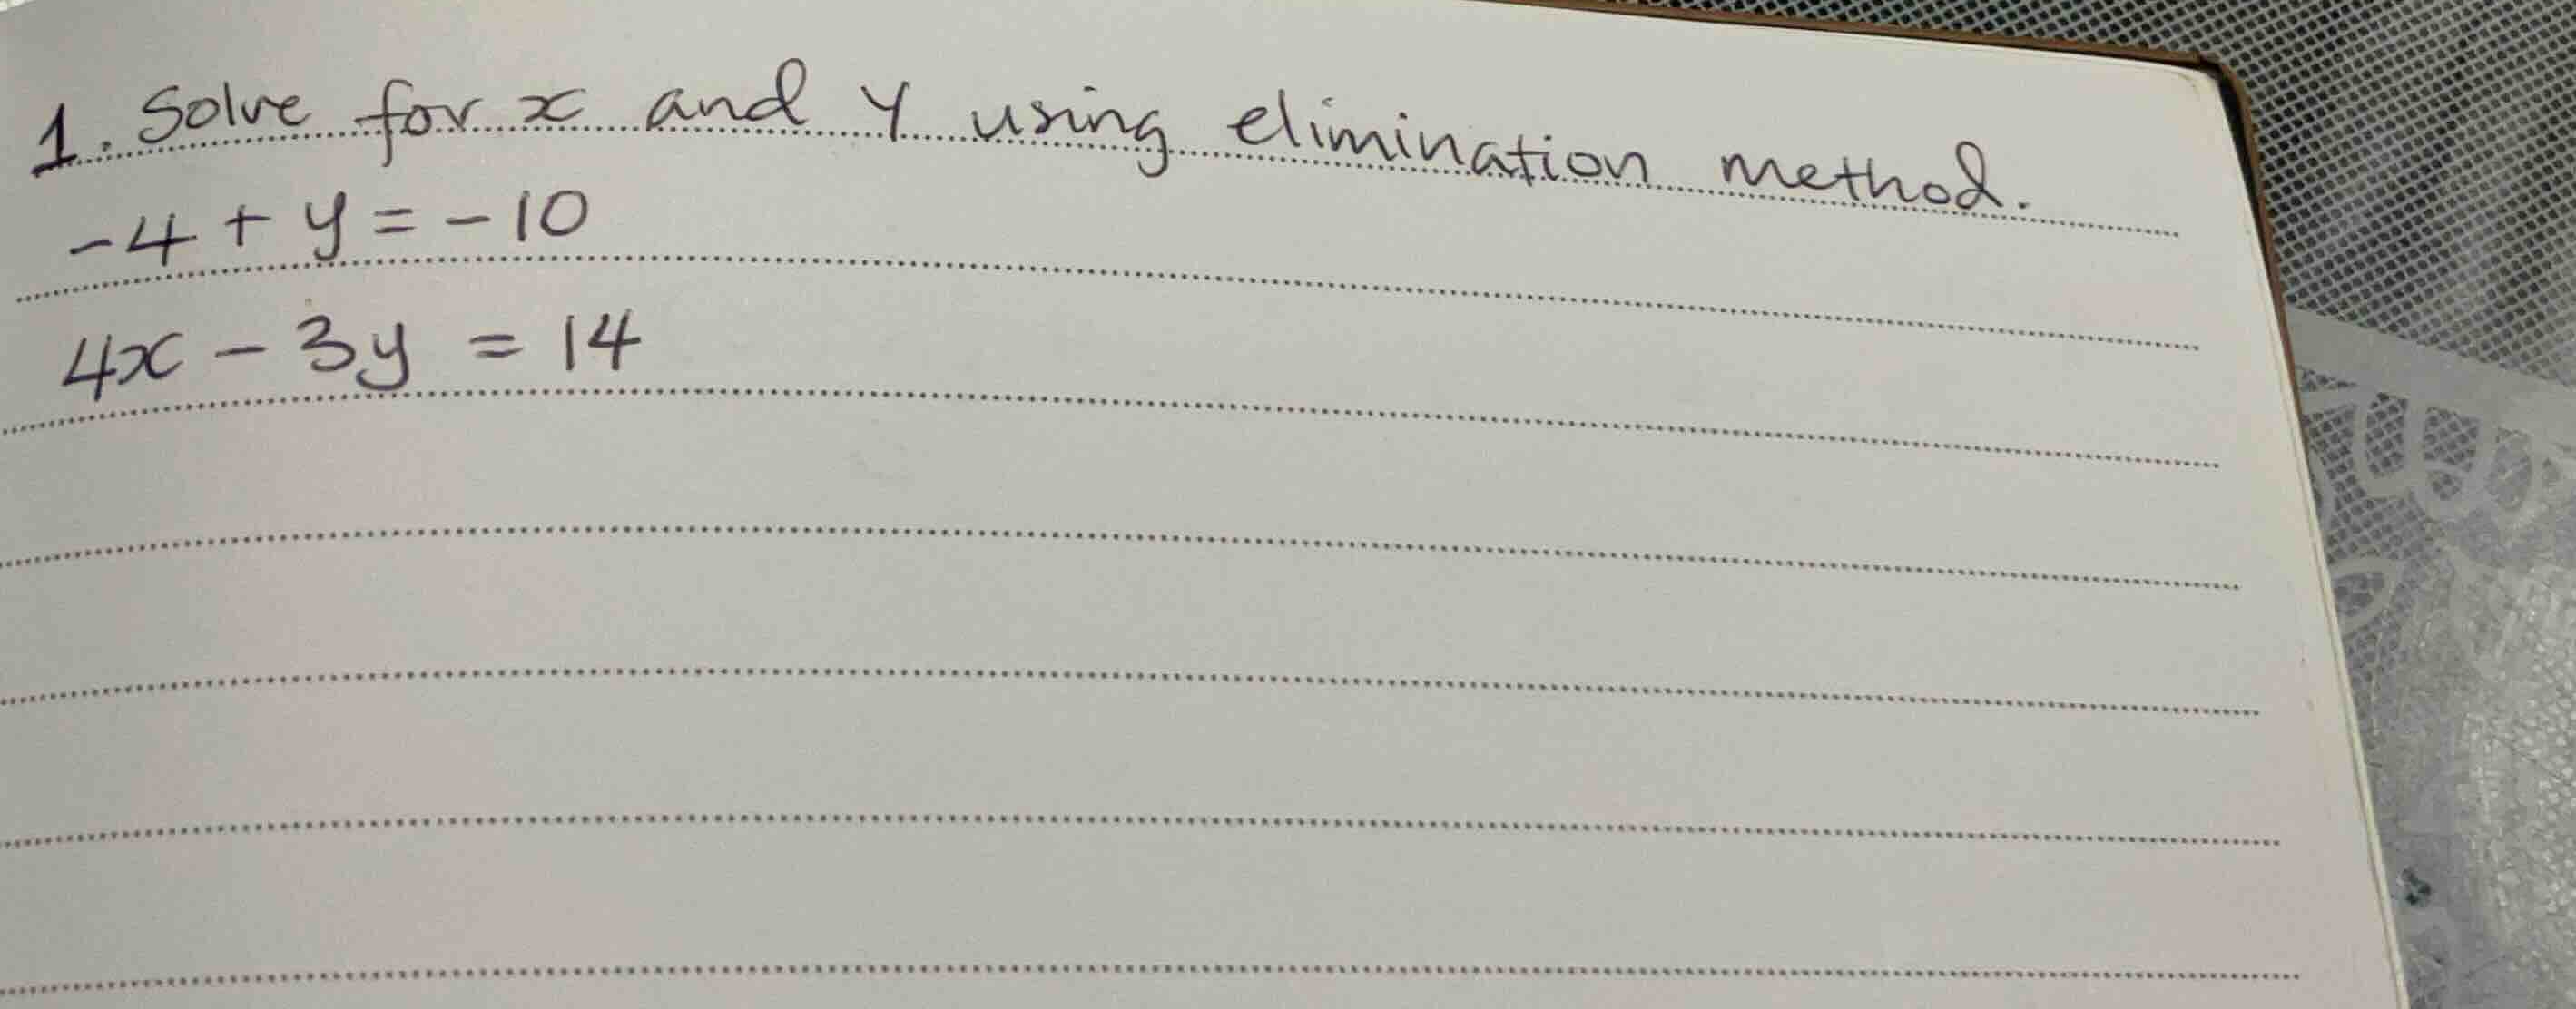 1. Solve for x and y using elimination method.
-4 + y = -10
4x - 3y = 14